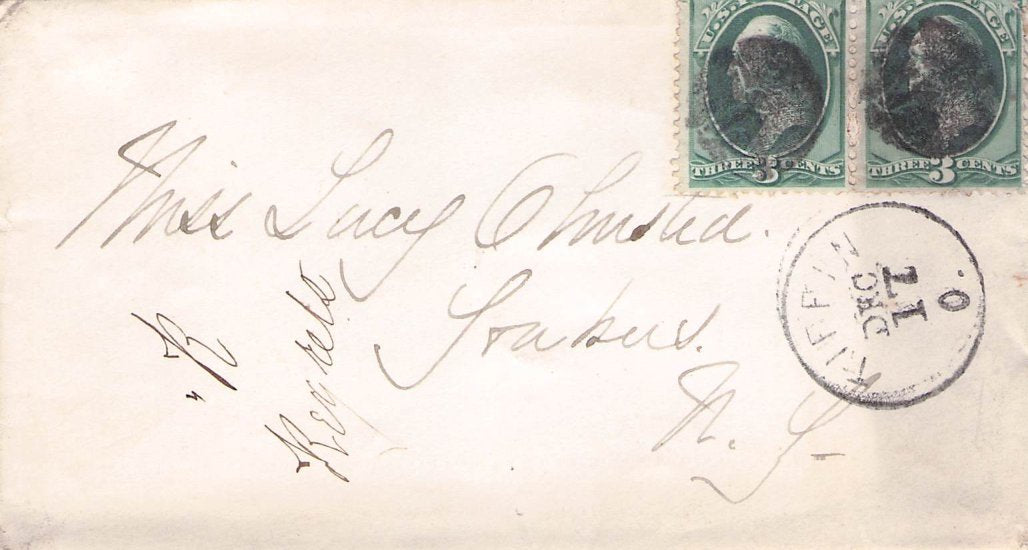 U.S. POSTAGE U.S. POSTAGE
THREE 3 CENTS THREE 3 CENTS
Miss Lucy Olmsted.
Yonkers.
N.Y.
"R
DEC
17
O.